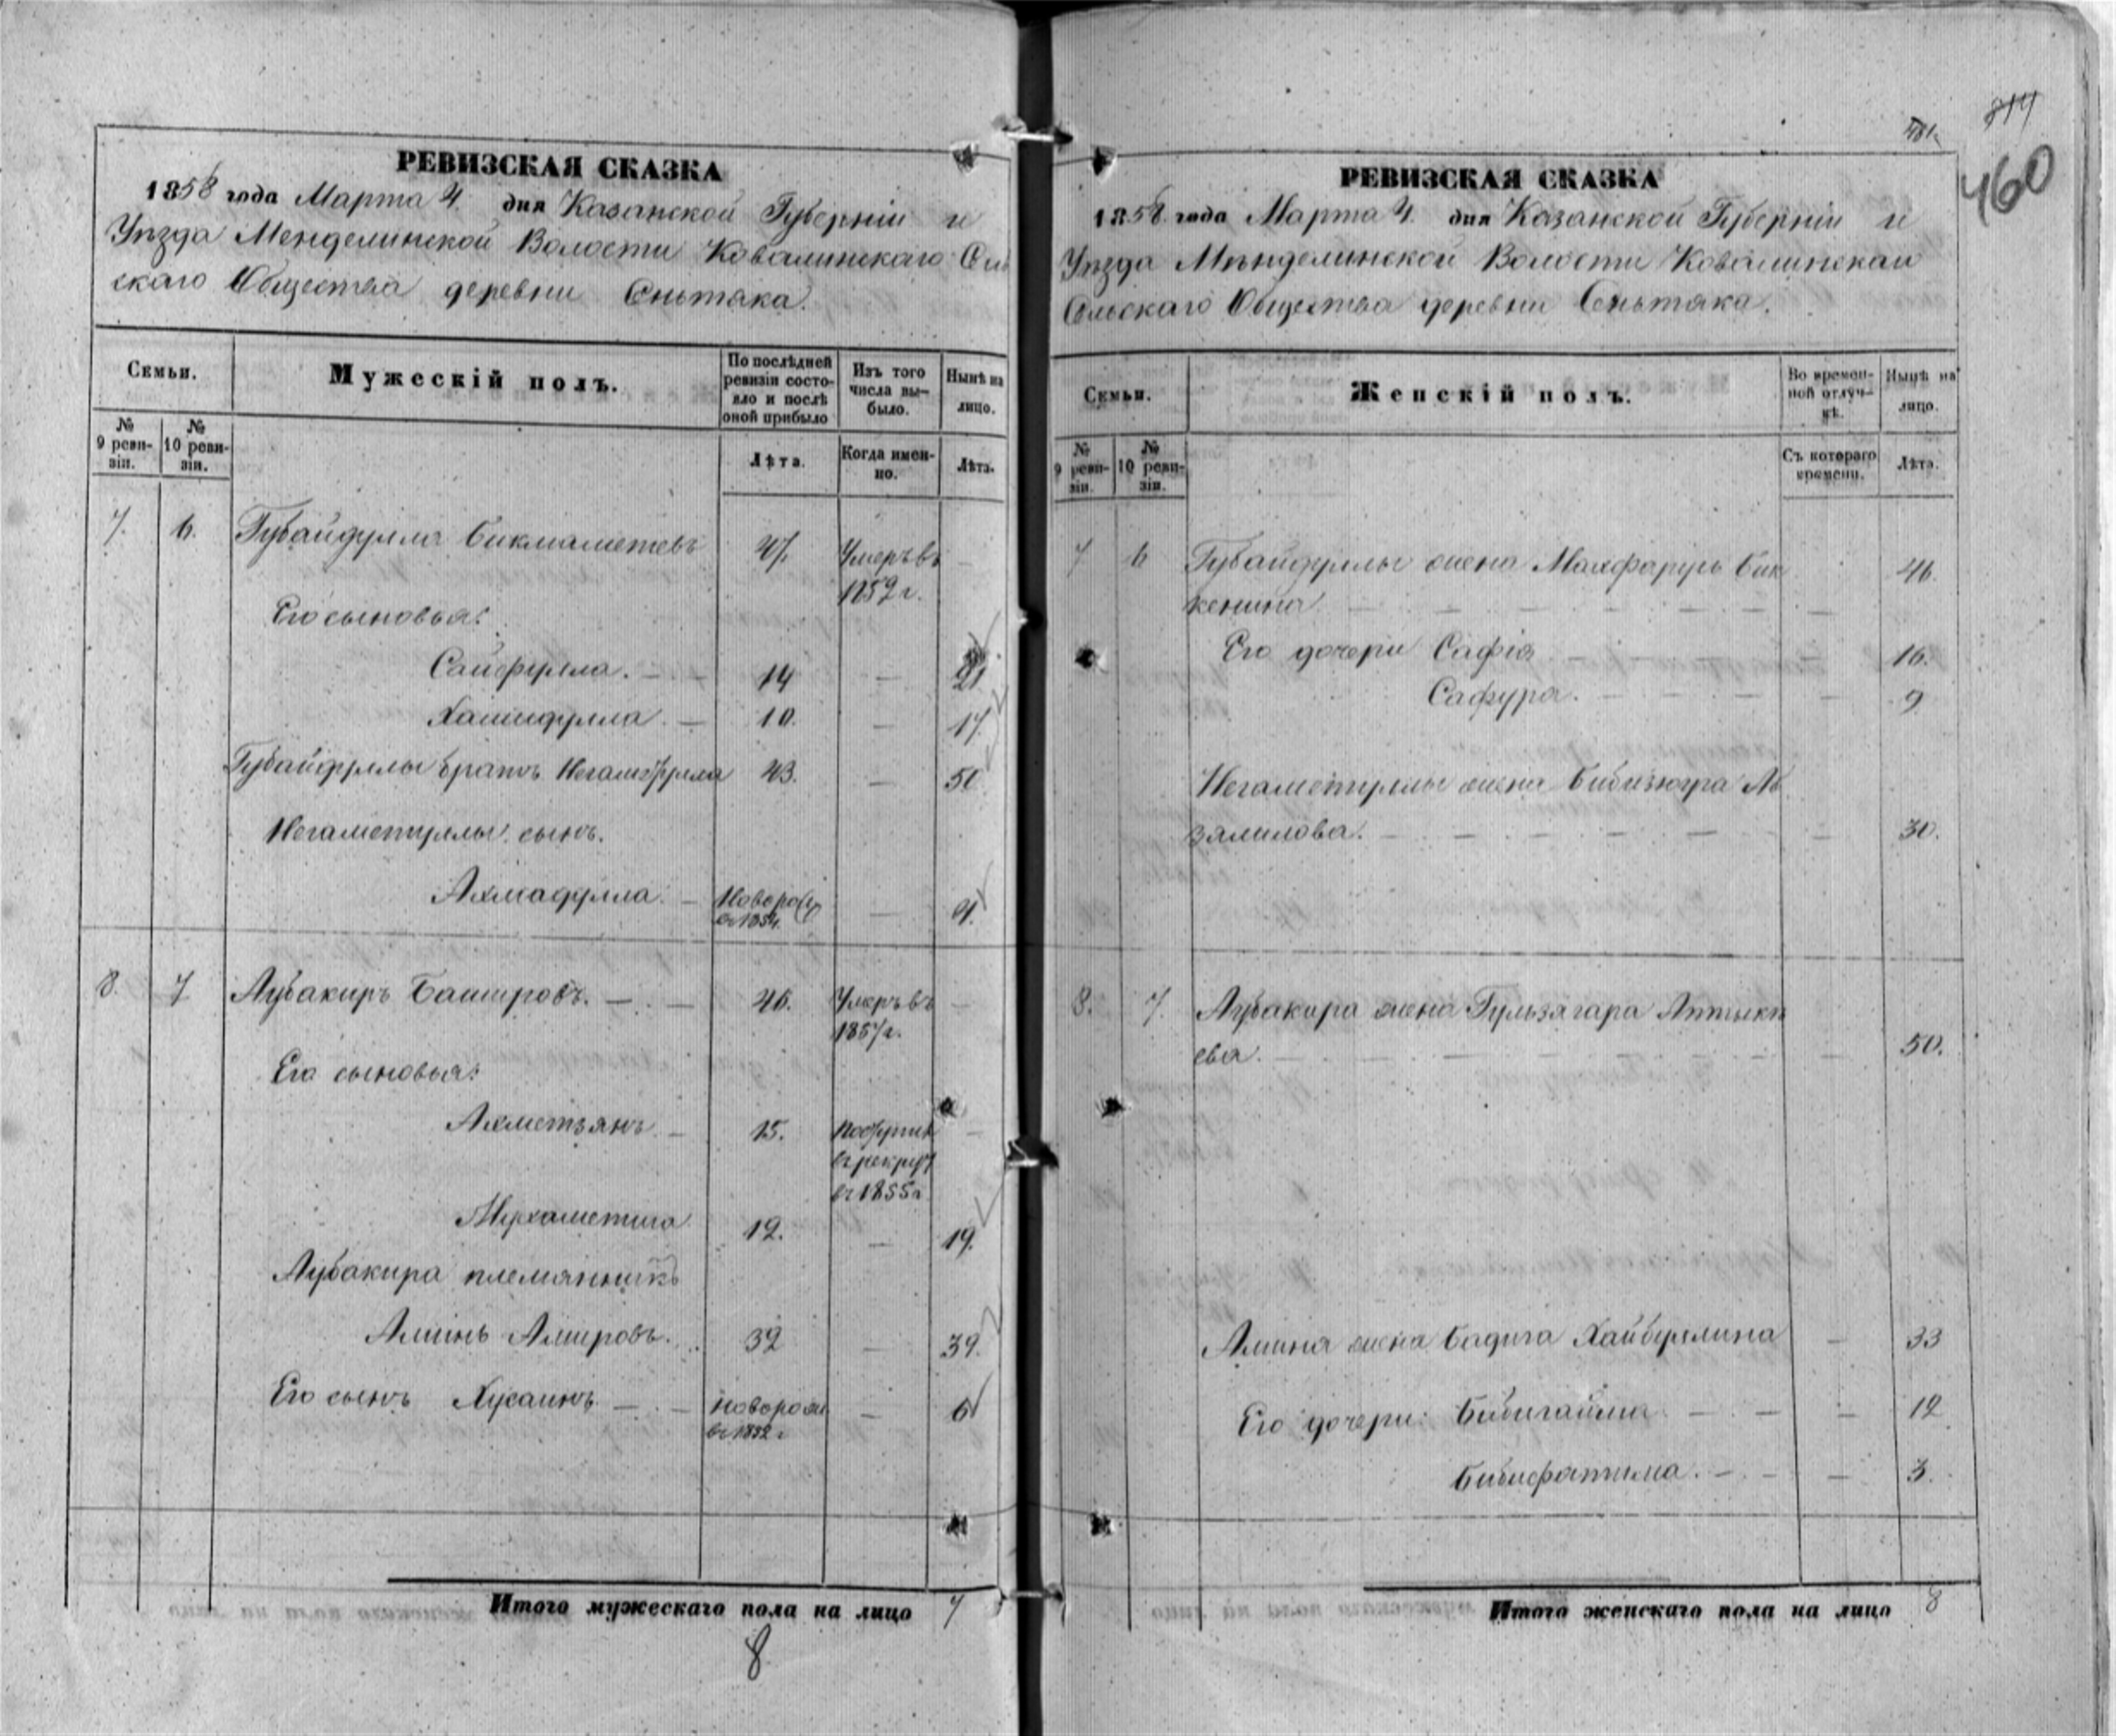 РЕВИЗСКАЯ СКАЗКА
1858 года Марта 4 дня Казанской Губерніи и
Уѣзда Менделинской Волости Ковалинскаго Сель
скаго Общества деревни Сеньтяка.
Семьи.
Мужескій полъ.
По послѣдней ревизіи состояло и послѣ оной прибыло
Изъ того числа выбыло.
Нынѣ на лицо.
№ 9 ревизіи.
№ 10 ревизіи.
Лѣта.
Когда именно.
Лѣта.
7. 6. Губайдулла Бикмаметевъ Умеръ въ
Его сыновья:
Сайфулла. 14 — 21
Хамидулла. 10. — 17.
Губайдуллы братъ Негаметулла 43. — 50
Негаметуллы сынъ.
Ахмадулла. — Новорож — 4.
въ 1854.
8. 7 Аубакиръ Башировъ. — 46. Умеръ въ —
1857 г.
Его сыновья:
Ахметзянъ — 15. поступил —
въ рекрут
въ 1855 г.
Мухаметша 12. — 19.
Аубакира племянникъ
Аминь Амировъ. 32 — 39.
Его сынъ Хусаинъ — новорож — 6
въ 1852 г
Итого мужескаго пола на лицо 7
8
814
460
РЕВИЗСКАЯ СКАЗКА
1858 года Марта 4 дня Казанской Губерніи и
Уѣзда Мѣнделинской Волости Ковалинскаго
Сельскаго Общества деревни Сеньтяка.
Семьи.
Женскій полъ.
Во временной отлучкѣ.
Нынѣ на лицо.
№ 9 ревизіи.
№ 10 ревизіи.
Съ котораго времени.
Лѣта.
7 6 Губайдуллы жена Махфаруь Бик
кенина — 46.
Его дочери Сафія — 16.
Сафура. — 9
Негаметуллы жена Бибизюгра Аб
зялилова. — 30.
8. 7. Аубакира жена Гульзягара Аптыкѣ
ева. — 50.
Амина жена Бадига Хайбуллина — 33
Его дочери: Бибигайша — 12
Бибифатима. — 3.
Итого женскаго пола на лицо 8